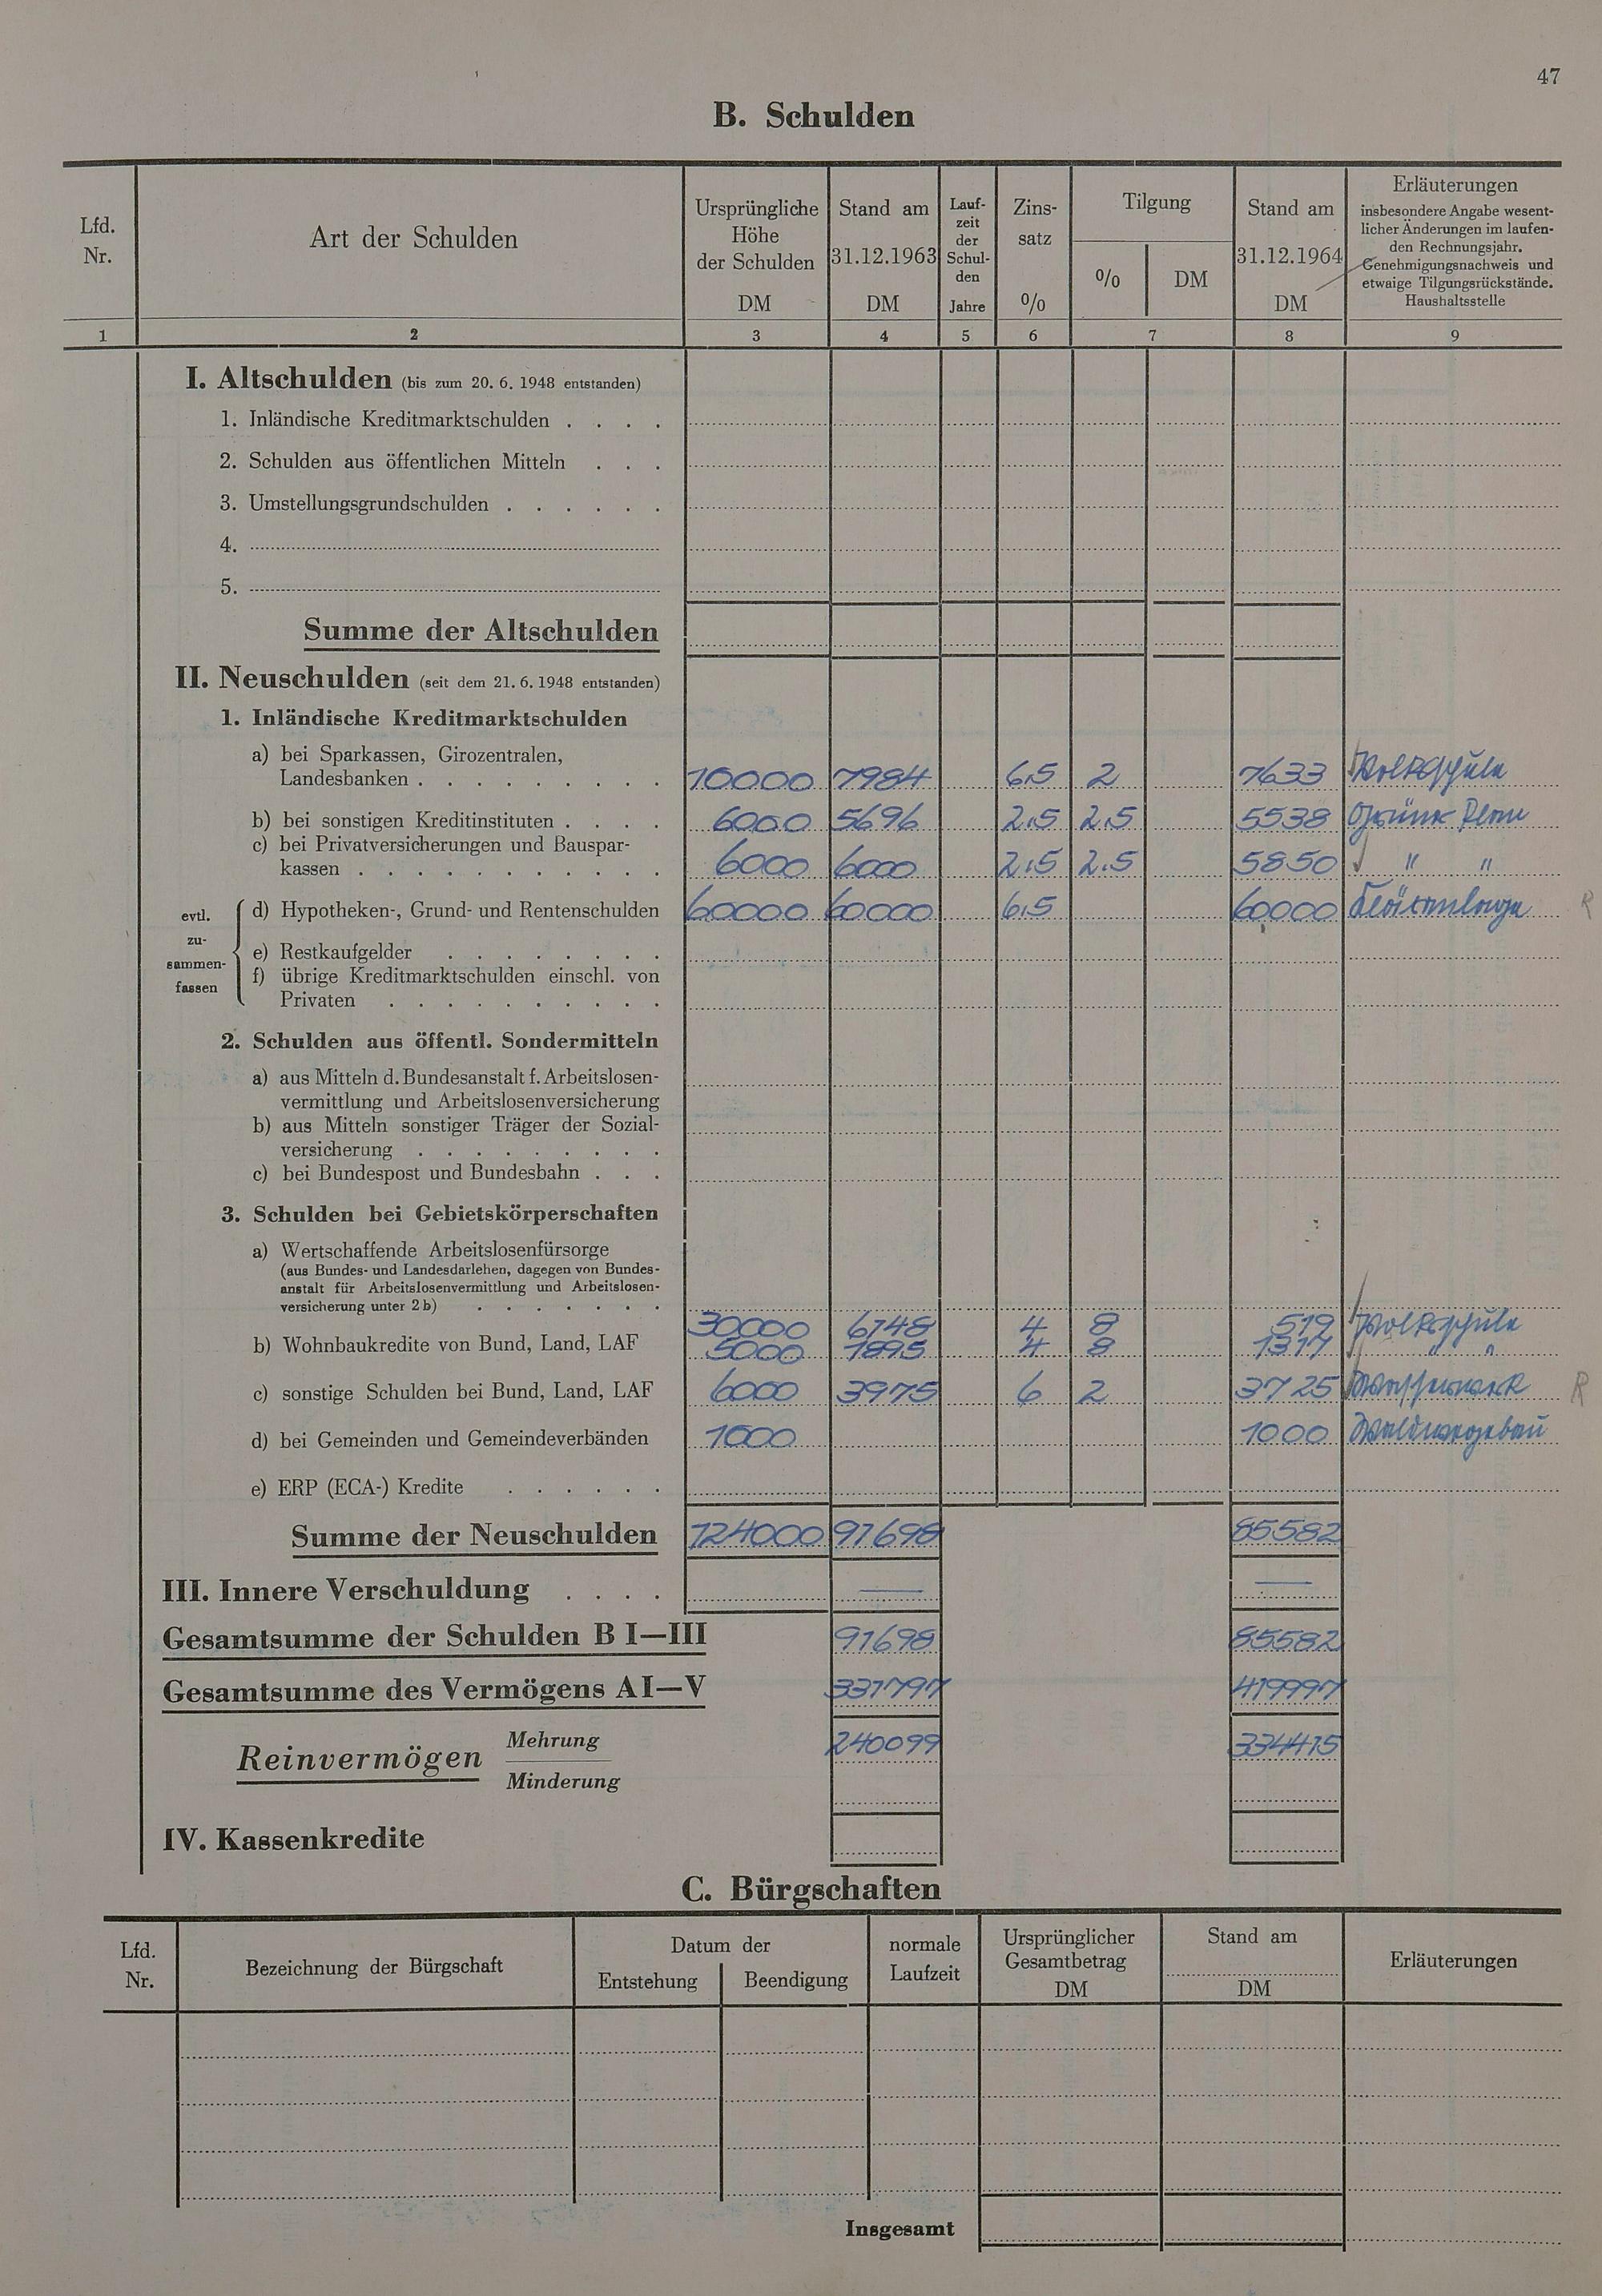 47
B. Schulden
Lfd. Nr.
Art der Schulden
Ursprüngliche Höhe der Schulden DM
Stand am 31.12.1963 DM
Lauf-
zeit
der
Schul-
den
Jahre
Zins-
satz
%
Tilgung
% DM
Stand am 31.12.1964 DM
Erläuterungen
insbesondere Angabe wesent-
licher Änderungen im laufen-
den Rechnungsjahr.
Genehmigungsnachweis und
etwaige Tilgungsrückstände.
Haushaltsstelle
1 2 3 4 5 6 7 8 9
I. Altschulden (bis zum 20. 6. 1948 entstanden)
1. Inländische Kreditmarktschulden . . . .
2. Schulden aus öffentlichen Mitteln . . .
3. Umstellungsgrundschulden . . . . . .
4.
5.
Summe der Altschulden
II. Neuschulden (seit dem 21. 6. 1948 entstanden)
1. Inländische Kreditmarktschulden
a) bei Sparkassen, Girozentralen,
Landesbanken . . . . . . . . . 10000 7984 6,5 2 7633 Volksschule
b) bei sonstigen Kreditinstituten . . . . 6000 5696 2,5 2.5 5538 Grüner Plan
c) bei Privatversicherungen und Bauspar-
kassen . . . . . . . . . . . 6000 6000 2,5 2.5 5850 " "
evtl.
zu-
sammen-
fassen
d) Hypotheken-, Grund- und Rentenschulden 60000 60000 6,5 60000 Kläranlage R
e) Restkaufgelder . . . . . . . .
f) übrige Kreditmarktschulden einschl. von
Privaten . . . . . . . . . .
2. Schulden aus öffentl. Sondermitteln
a) aus Mitteln d. Bundesanstalt f. Arbeitslosen-
vermittlung und Arbeitslosenversicherung
b) aus Mitteln sonstiger Träger der Sozial-
versicherung . . . . . . . . .
c) bei Bundespost und Bundesbahn . . .
3. Schulden bei Gebietskörperschaften
a) Wertschaffende Arbeitslosenfürsorge
(aus Bundes- und Landesdarlehen, dagegen von Bundes-
anstalt für Arbeitslosenvermittlung und Arbeitslosen-
versicherung unter 2 b) . . . . . . .
30000 6148 4 8 519 Volksschule
b) Wohnbaukredite von Bund, Land, LAF 5000 1895 4 8 1317 " "
c) sonstige Schulden bei Bund, Land, LAF 6000 3975 6 2 3725 Wasserwerk R
d) bei Gemeinden und Gemeindeverbänden 1000 1000 Waldwegebau
e) ERP (ECA-) Kredite . . . . . .
Summe der Neuschulden 124000 91698 85582
III. Innere Verschuldung . . . . — —
Gesamtsumme der Schulden B I—III 91698 85582
Gesamtsumme des Vermögens A I—V 331797 419997
Reinvermögen
Mehrung 240099 334415
Minderung
IV. Kassenkredite
C. Bürgschaften
Lfd. Nr.
Bezeichnung der Bürgschaft
Datum der
Entstehung Beendigung
normale Laufzeit
Ursprünglicher Gesamtbetrag DM
Stand am
DM
Erläuterungen
Insgesamt